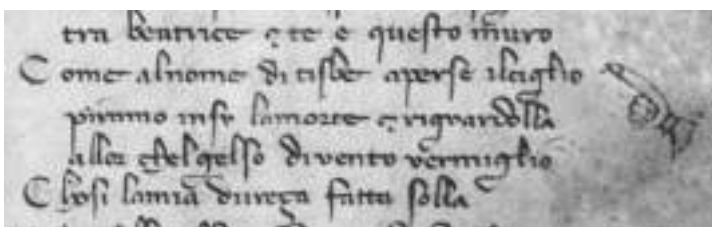 tra beatrice ⁊ te e questo muro
Come alnome di tisbe aperse ilciglio
piramo insu lamorte ⁊ riguardolla
allor chel gelso divento vermiglio
Chosi lamia dureça fatta solla